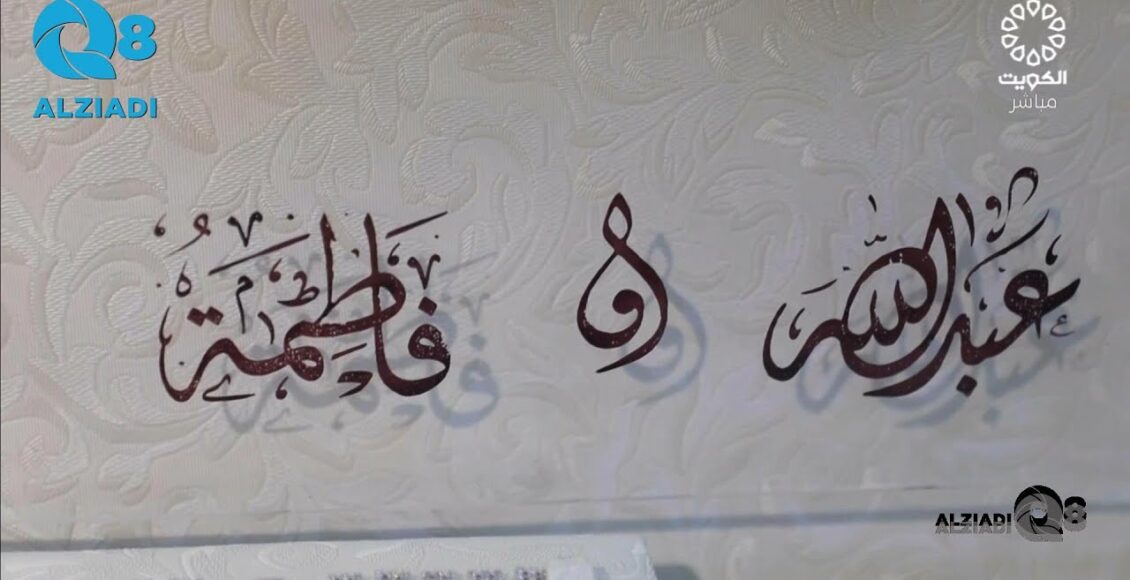 Q8
ALZIADI
الكويت
مباشر
عبدالله و فاطمة
ALZIADI Q8